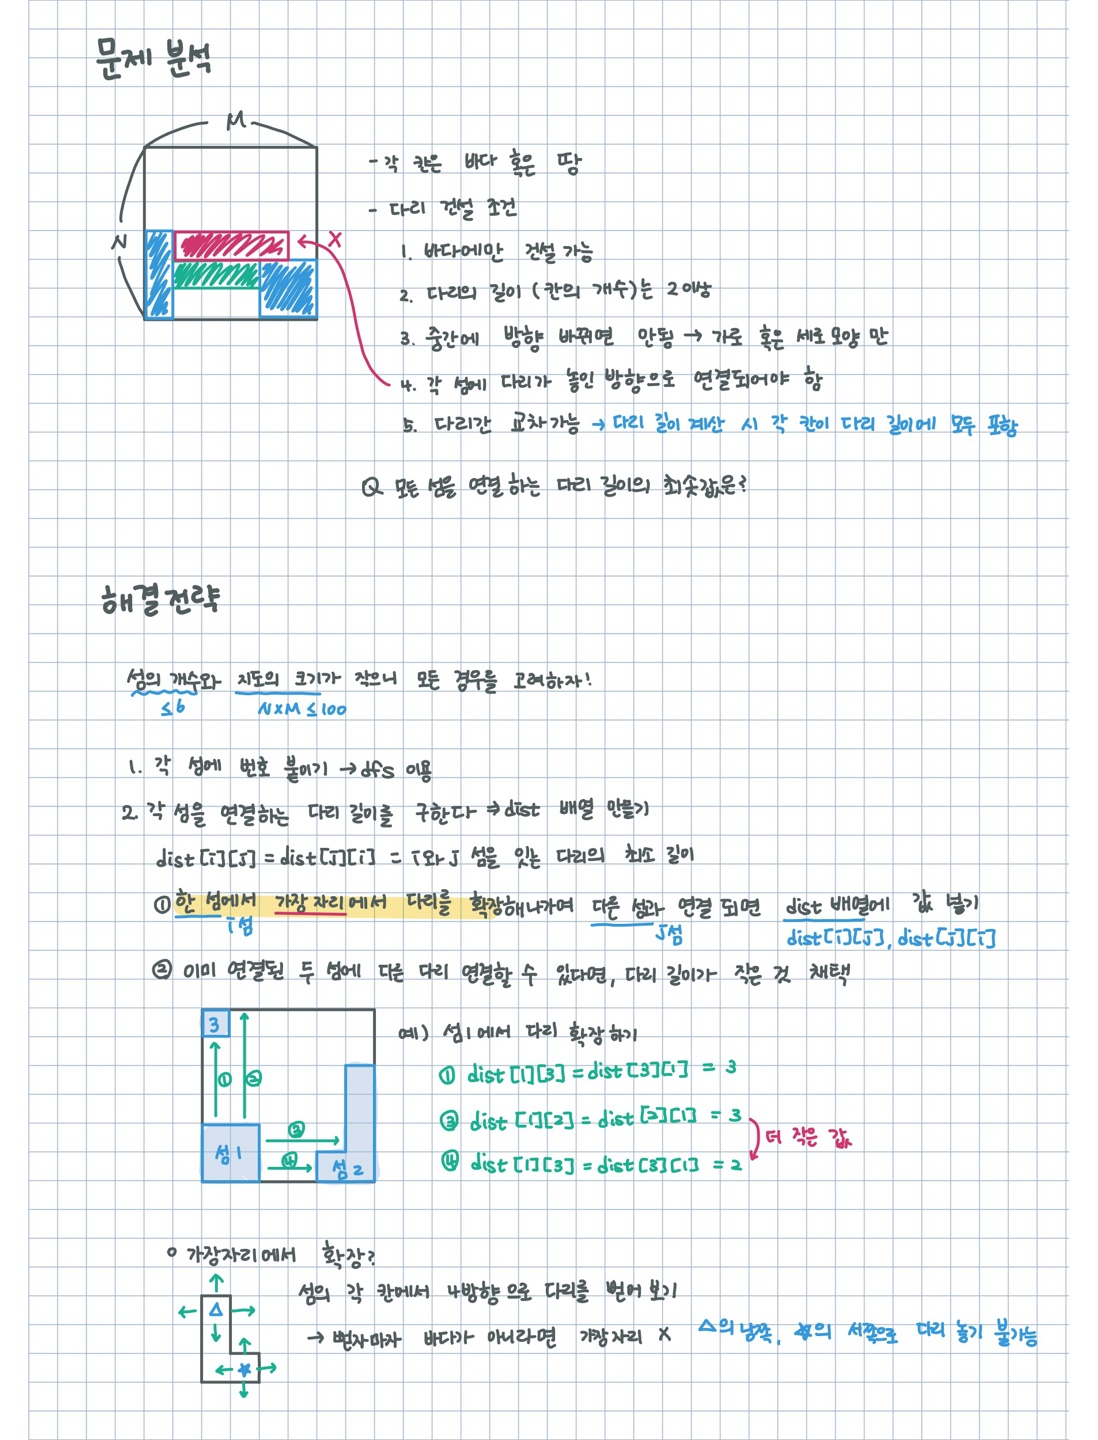 문제 분석
M
N
X
- 각 칸은 바다 혹은 땅
- 다리 건설 조건
1. 바다에만 건설 가능
2. 다리의 길이 (칸의 개수)는 2이상
3. 중간에 방향 바뀌면 안됨 → 가로 혹은 세로 모양 만
4. 각 섬에 다리가 놓인 방향으로 연결되어야 함
5. 다리간 교차가능 → 다리 길이 계산 시 각 칸이 다리 길이에 모두 포함
Q 모든 섬을 연결하는 다리 길이의 최솟값은?
해결전략
섬의 개수와 지도의 크기가 작으니 모든 경우를 고려하자!
≤6 N×M ≤100
1. 각 섬에 번호 붙이기 → dfs 이용
2. 각 섬을 연결하는 다리 길이를 구한다 ⇒ dist 배열 만들기
dist[i][j] = dist[j][i] = i와 j 섬을 잇는 다리의 최소 길이
① 한 섬에서 가장자리에서 다리를 확장해나가며 다른 섬과 연결 되면 dist 배열에 값 넣기
i섬 j섬 dist[i][j], dist[j][i]
② 이미 연결된 두 섬에 다른 다리 연결할 수 있다면, 다리 길이가 작은 것 채택
3
① ②
③
섬1
④
섬2
예) 섬1에서 다리 확장하기
① dist[1][3] = dist[3][1] = 3
③ dist[1][2] = dist[2][1] = 3
더 작은 값
④ dist[1][3] = dist[3][1] = 2
○ 가장자리에서 확장?
섬의 각 칸에서 4방향으로 다리를 뻗어 보기
→ 뻗자마자 바다가 아니라면 가장자리 X △의 남쪽, ☆의 서쪽으로 다리 놓기 불가능